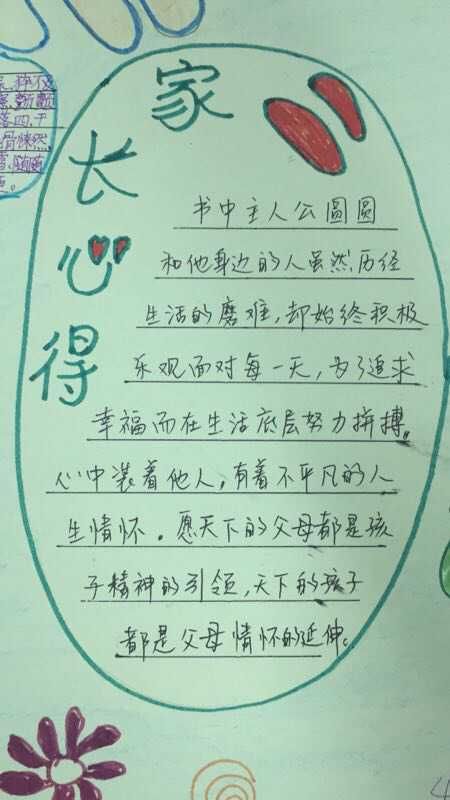 家长心得
书中主人公圆圆
和他身边的人虽然历经
生活的磨难,却始终积极
乐观面对每一天,为了追求
幸福而在生活底层努力拼搏。
心中装着他人,有着不平凡的人
生情怀。愿天下的父母都是孩
子精神的引领,天下的孩子
都是父母情怀的延伸。